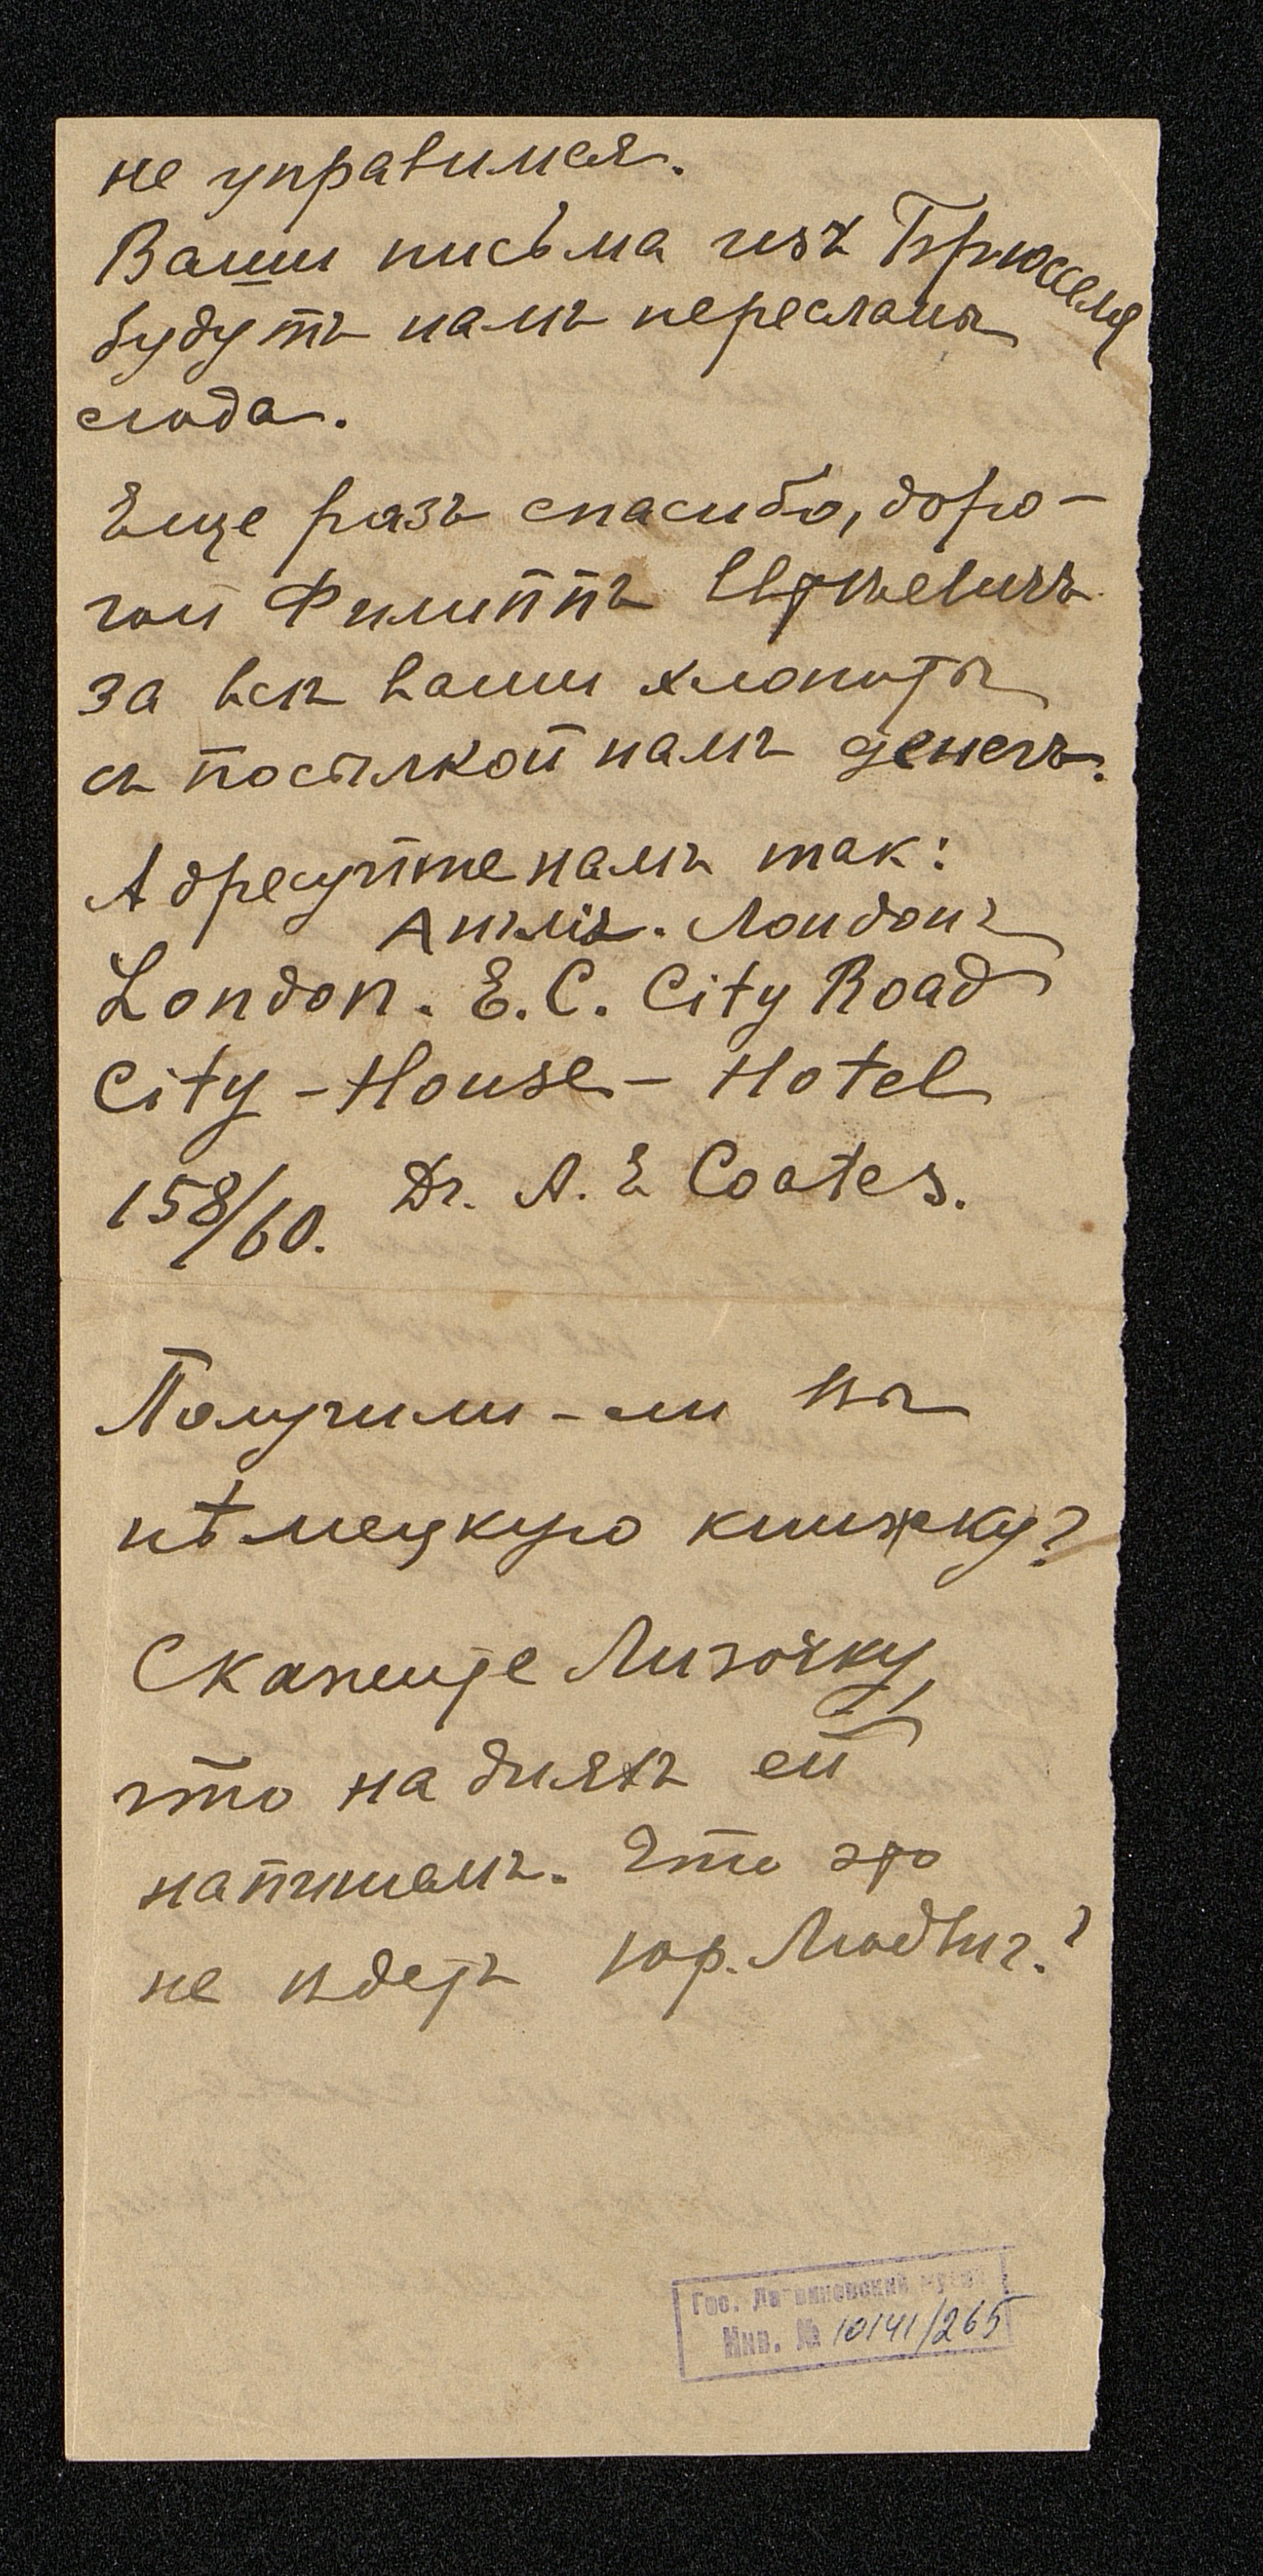 не управимся.
Ваши письма изъ Брюсселя
будутъ намъ пересланы
сюда.
Еще разъ спасибо, доро-
гой Филиппъ
за всѣ ваши хлопоты
съ посылкой намъ денегъ.
Адресуйте намъ так:
Англія. Лондонъ
London. E. C. City Road
City - House - Hotel
158/60. Dr. A. E Coates.
Получили-ли вы
нѣмецкую книжку?
Скажите Лизочку,
что на дняхъ ей
напишемъ. Что это
не ѣдетъ Юр. Людвиг.?
Гос. Литвиновский музей
Инв. № 10141/265